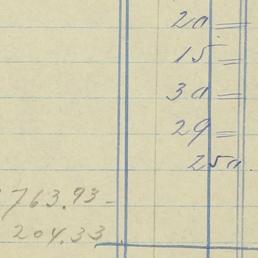 20 =
15 =
30 =
29 =
250.
763.93 -
204.33